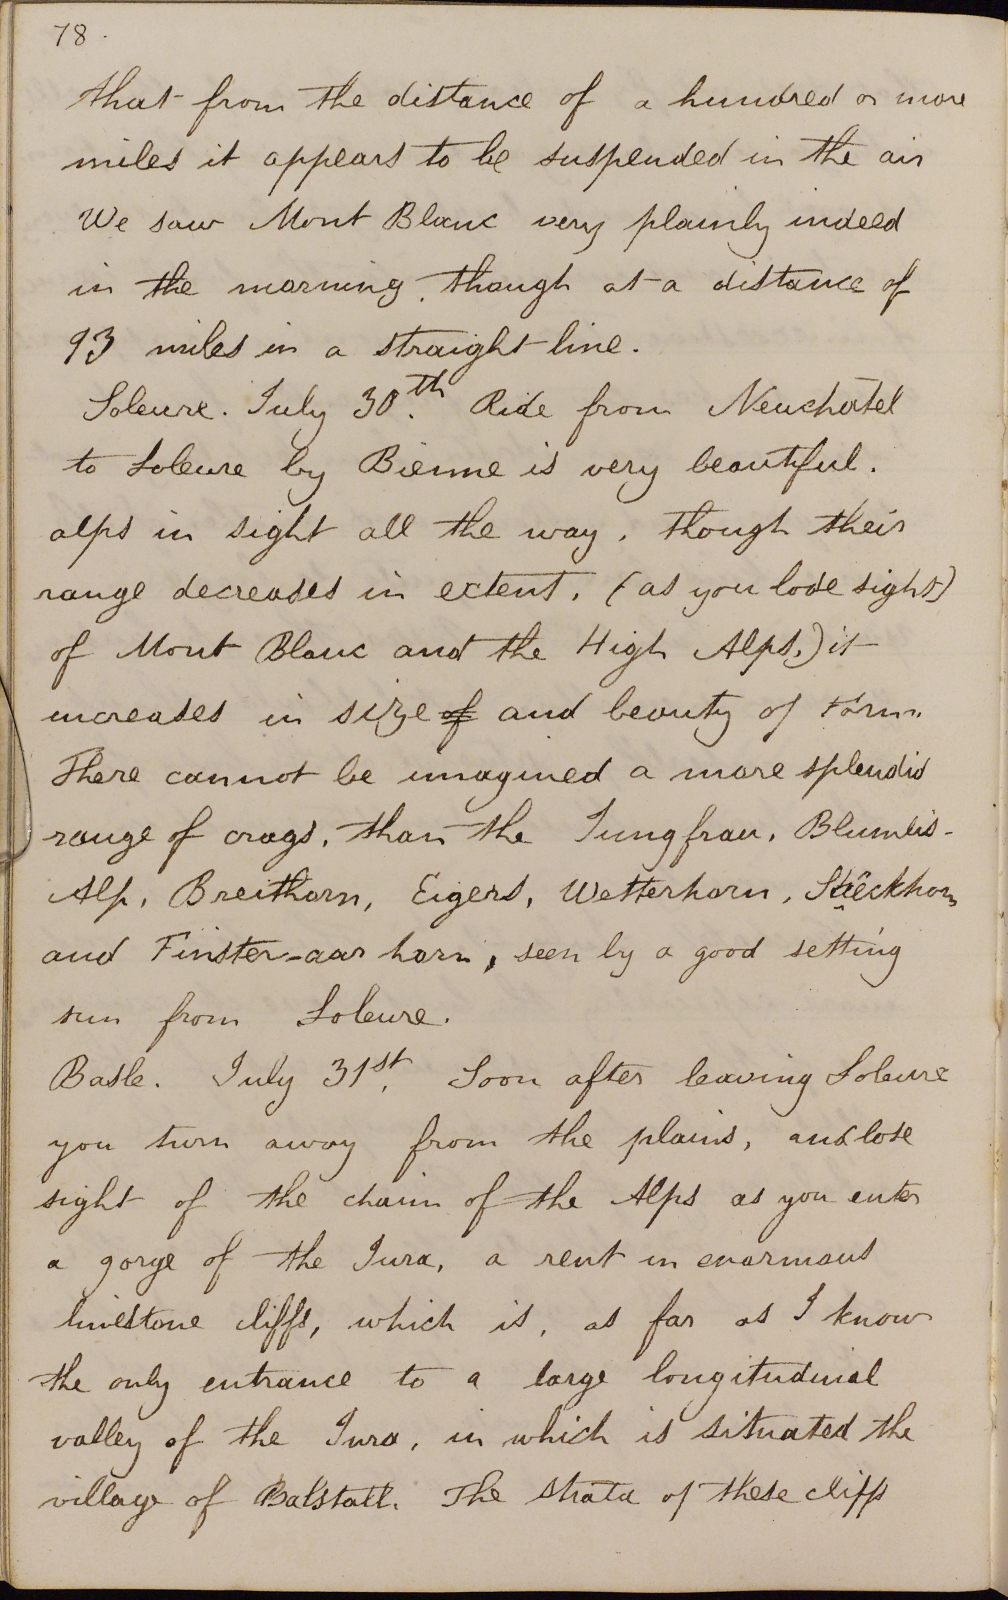 78.
that from the distance of a hundred or more
miles it appears to be suspended in the air
We saw Mont Blanc very plainly indeed
in the morning, though at a distance of
93 miles in a straight line.
Soleure. July 30th. Ride from Neuchâtel
to Soleure by Bienne is very beautiful.
alps in sight all the way, though their
range decreases in extent, (as you lose sight)
of Mont Blanc and the High Alps,) it
increases in size of and beauty of form.
There cannot be imagined a more splendid
range of crags, than the Jungfrau, Blumlis-
Alp, Breithorn, Eigers, Wetterhorn,
and Finster-aar horn, seen by a good setting
sun from Soleure.
Basle. July 31st. Soon after leaving Soleure
you turn away from the plains, and lose
sight of the chain of the Alps as you enter
a gorge of the Jura, a rent in enormous
limestone cliffs, which is, as far as I know
the only entrance to a large longitudinal
valley of the Jura, in which is situated the
village of Balstall. The strata of these cliffs